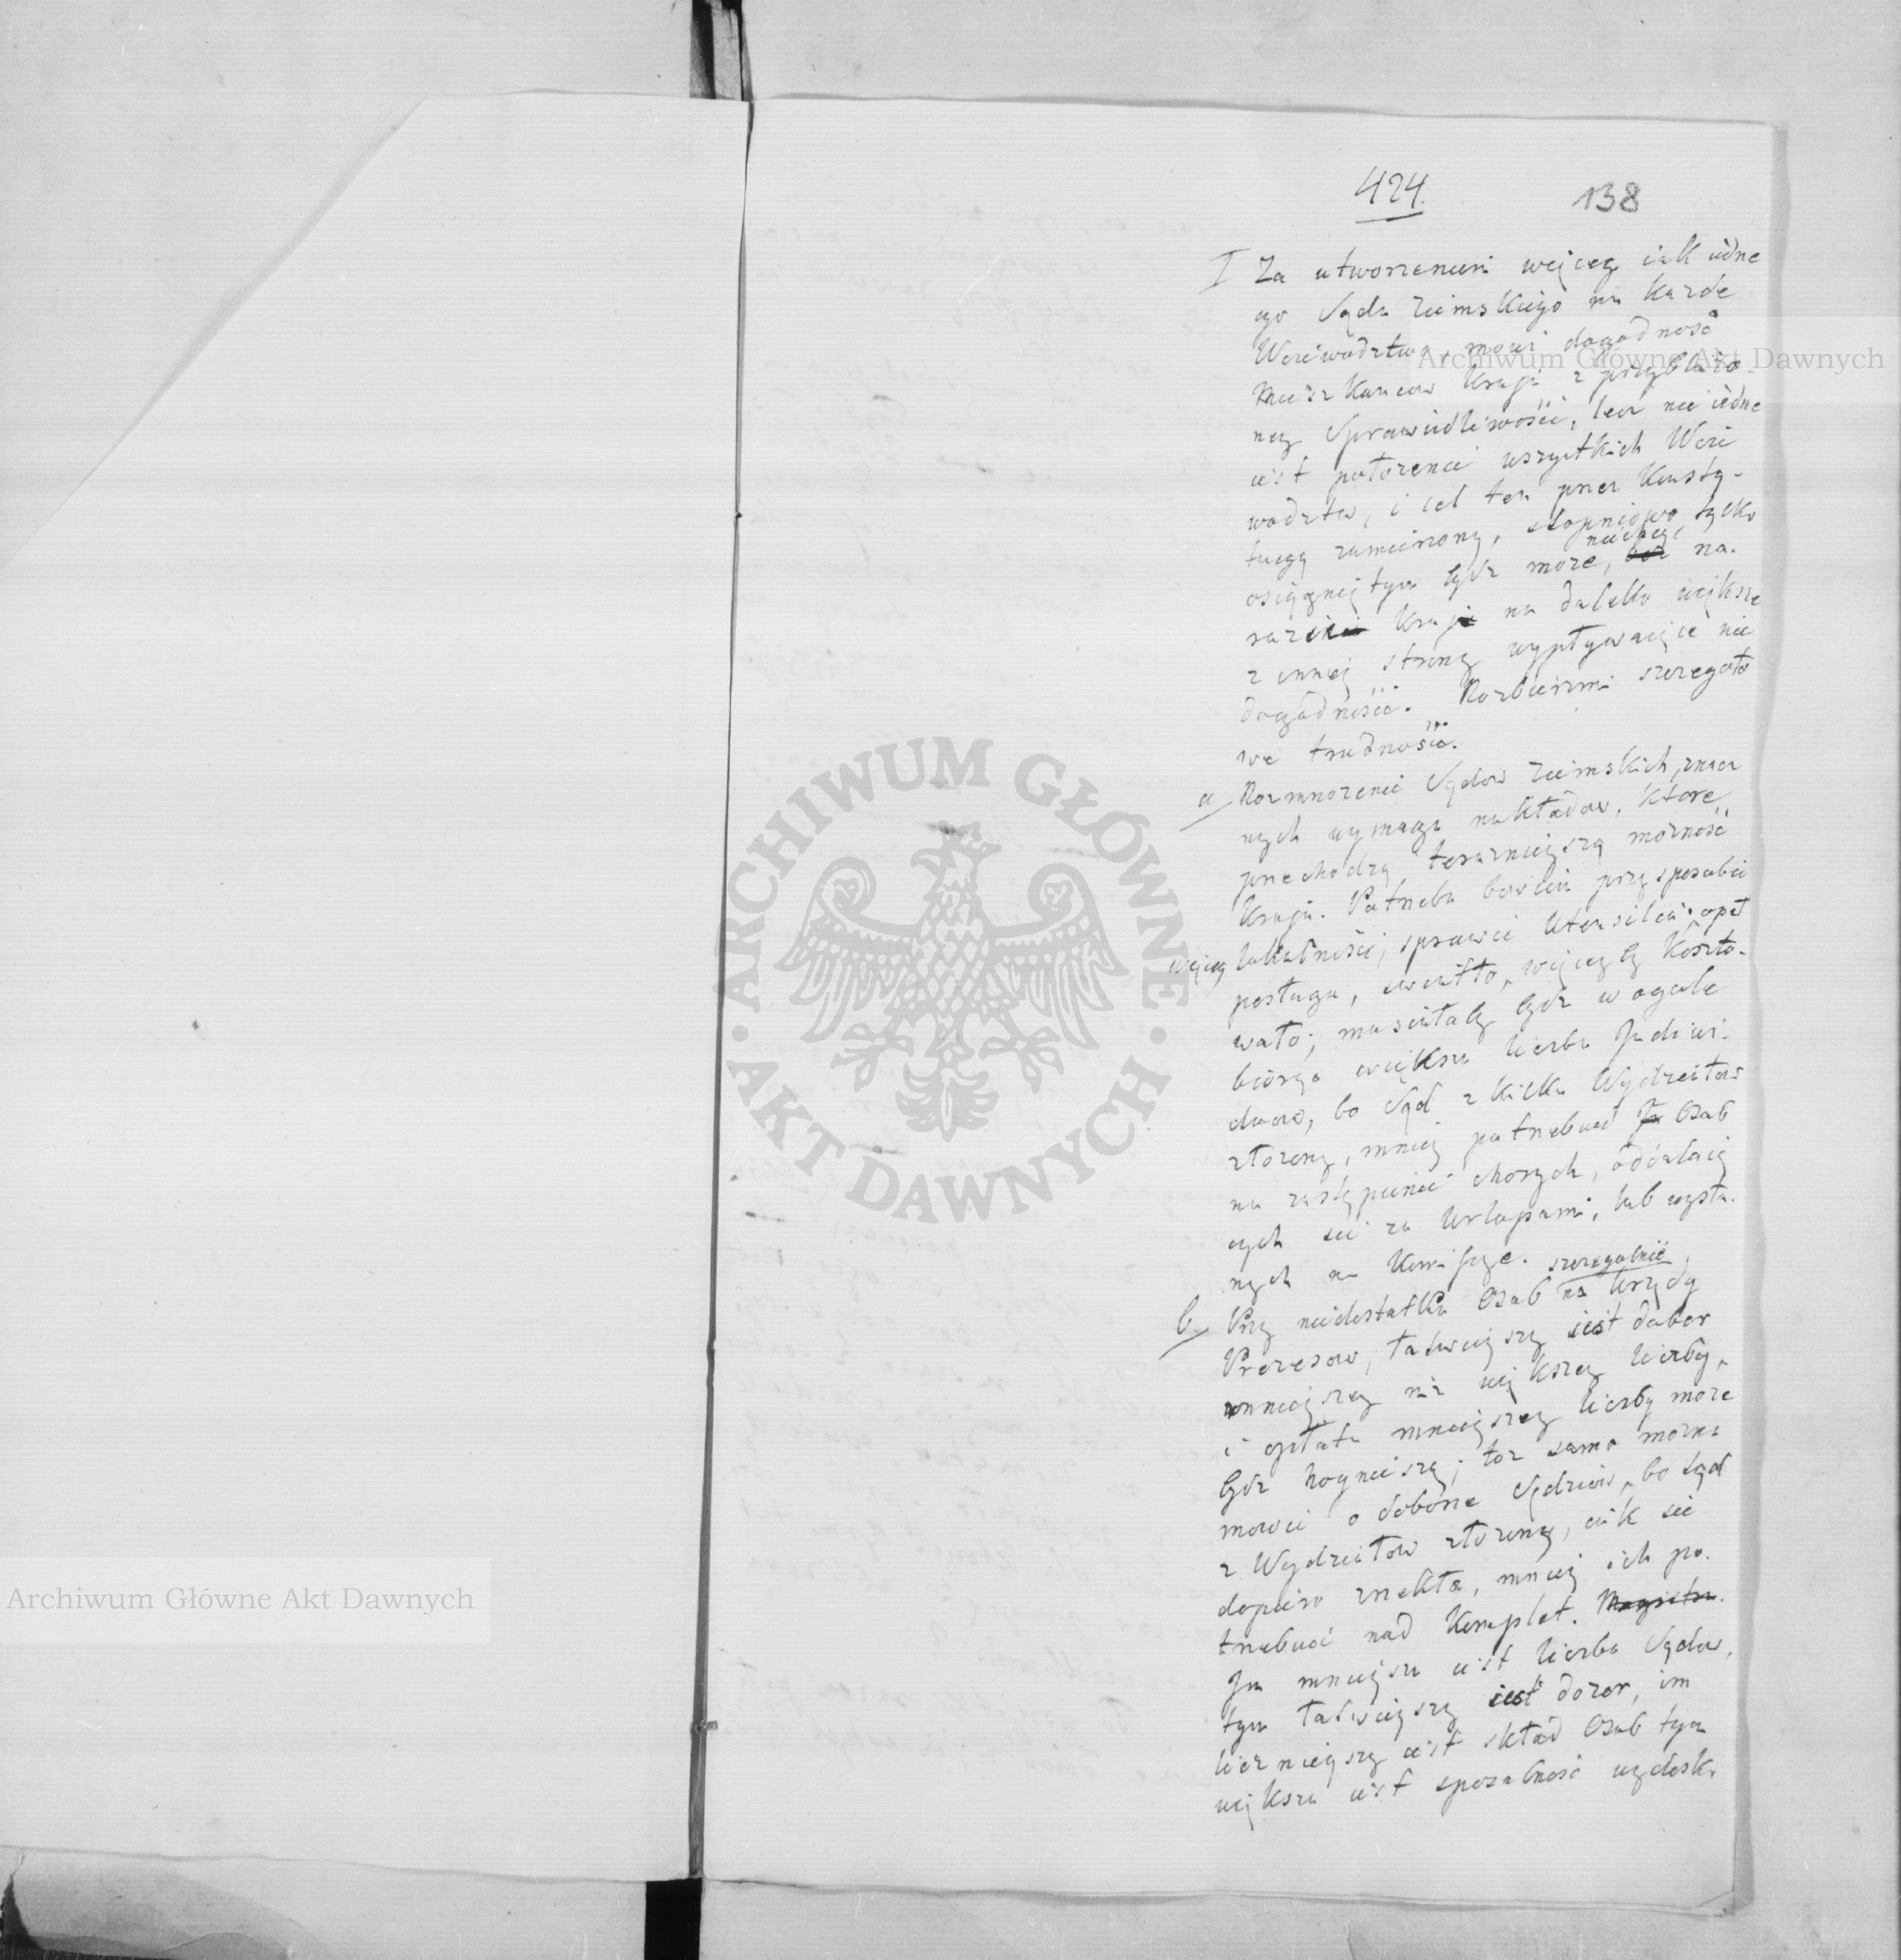 424.
138
I Za utworzeniem więcey iak iedne
go Sądu Ziemskiego na każde
Woiewodztwo, mowi dogodność
Mieszkancow kraju z przybliżo-
ney Sprawiedliwości, lecz nie iedne
iest położenie wszystkich Woie
wodztw, i cel ten przez Konsty-
tucyą zamierzony, stopniowo tylko
osiągniętym bydź może, nie
na-
rażaiąc kraj na daleko większe
z inney strony wypływaiące nie
dogodności. Rozbierzmi szczegoło
we trudności.
a/ Rozmnożenie Sądow Ziemskich, znacz
nych wymaga nakładow, ktore
przechodzą teraznieyszą możność
kraju. Potrzeba bowiem przysposobić
więcey lokalności, sprawić utensilia, opał
posługa, swiatło, więcey by koszto-
wało; musiałaby bydź w ogole
biorąc większa liczba Indiwi-
duow, bo Sąd z kilku Wydziałow
złożony, mniey potrzebuie Osob
na zastąpienie chorych, oddalaią
cych się za Urlopami, lub wysła-
nych na Komissye.
szczegolnie
b/ Przy niedostatku Osob na Urzędy
Prezesow, łatwieyszy iest dobor
mnieyszey niż większey liczby,
i opłata mnieyszey liczby może
bydź hoynieiszą; toż samo można
mowić o doborze Sędziow, bo Sąd
z Wydziałow złożony, iak się
dopiero rzekło, mniey ich po-
trzebuie nad Komplet. Magistra-
Im mnieysza iest liczba Sądow,
tym łatwieyszy iest dozor, im
licznieyszy iest skład Osob tym
większa iest sposobność wydosko
Archiwum Główne Akt Dawnych
ARCHIWUM GŁÓWNE
AKT DAWNYCH
Archiwum Główne Akt Dawnych